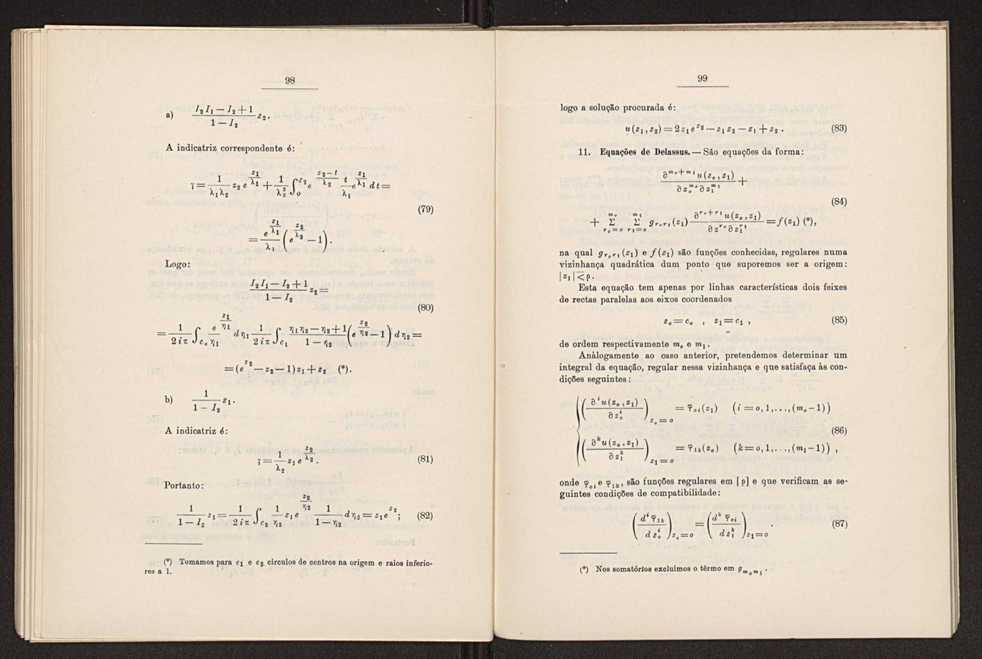 98
a) \frac{I_2 I_1 - I_2 + 1}{1 - I_2} z_2.
A indicatriz correspondente é:
ī = \frac{1}{λ_1 λ_2} z_2 e^{\frac{z_1}{λ_1}} + \frac{1}{λ_2^2} \int_o^{z_2} e^{\frac{z_2 - t}{λ_2}} \frac{t}{λ_1} e^{\frac{z_1}{λ_1}} dt =
(79)
= \frac{e^{\frac{z_1}{λ_1}}}{λ_1} \left( e^{\frac{z_2}{λ_2}} - 1 \right).
Logo:
\frac{I_2 I_1 - I_2 + 1}{1 - I_2} z_2 =
(80)
= \frac{1}{2iπ} \int_{c_1} \frac{e^{\frac{z_1}{η_1}}}{η_1} dη_1 \frac{1}{2iπ} \int_{c_1} \frac{η_1 η_2 - η_2 + 1}{1 - η_2} \left( e^{\frac{z_2}{η_2}} - 1 \right) dη_2 =
= (e^{z_2} - z_2 - 1) z_1 + z_2 (*).
b) \frac{1}{1 - I_2} z_1.
A indicatriz é:
ī = \frac{1}{λ_2} z_1 e^{\frac{z_2}{λ_2}}. (81)
Portanto:
\frac{1}{1 - I_2} z_1 = \frac{1}{2iπ} \int_{c_2} \frac{1}{η_2} z_1 e^{\frac{z_2}{η_2}} \frac{1}{1 - η_2} dη_2 = z_1 e^{z_2}; (82)
(*) Tomamos para c_1 e c_2 círculos de centros na origem e raios inferio-
res a 1.
99
logo a solução procurada é:
u(z_1, z_2) = 2 z_1 e^{z_2} - z_1 z_2 - z_1 + z_2. (83)
11. Equações de Delassus. — São equações da forma:
\frac{∂^{m_o + m_1} u(z_o, z_1)}{∂z_o^{m_o} ∂z_1^{m_1}} +
(84)
+ \sum_{r_o = o}^{m_o} \sum_{r_1 = o}^{m_1} g_{r_o r_1}(z_1) \frac{∂^{r_o + r_1} u(z_o, z_1)}{∂z_o^{r_o} ∂z_1^{r_1}} = f(z_1) (*),
na qual g_{r_o r_1}(z_1) e f(z_1) são funções conhecidas, regulares numa
vizinhança quadrática dum ponto que suporemos ser a origem:
|z_1| ⩽ ρ.
Esta equação tem apenas por linhas características dois feixes
de rectas paralelas aos eixos coordenados
z_o = c_o , z_1 = c_1 , (85)
de ordem respectivamente m_o e m_1.
Anàlogamente ao caso anterior, pretendemos determinar um
integral da equação, regular nessa vizinhança e que satisfaça às con-
dições seguintes:
\left( \frac{∂^i u(z_o, z_1)}{∂z_o^i} \right)_{z_o = o} = φ_{oi}(z_1) (i = o, 1, ..., (m_o - 1))
(86)
\left( \frac{∂^k u(z_o, z_1)}{∂z_1^k} \right)_{z_1 = o} = φ_{1k}(z_o) (k = o, 1, ..., (m_1 - 1)) ,
onde φ_{oi} e φ_{1k}, são funções regulares em [ρ] e que verificam as se-
guintes condições de compatibilidade:
\left( \frac{d^i φ_{1k}}{dz_o^i} \right)_{z_o = o} = \left( \frac{d^k φ_{oi}}{dz_1^k} \right)_{z_1 = o} . (87)
(*) Nos somatórios excluimos o têrmo em g_{m_o m_1}.